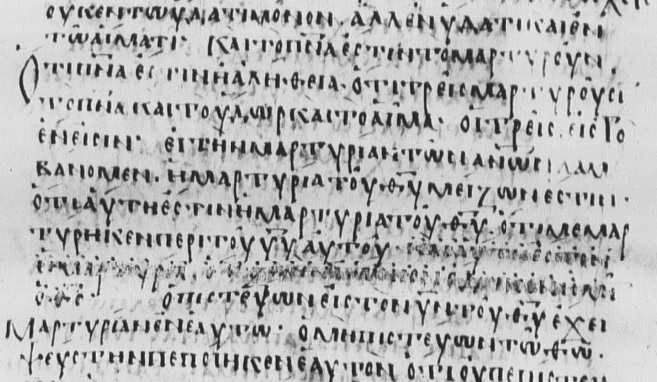 ΟΥΚΕΝΤΩΥΔΑΤΙΜΟΝΟΝ. ΑΛΛΕΝΥΔΑΤΙΚΑΙΕΝ
ΤΩΑΙΜΑΤΙ· ΚΑΙΤΟΠΝ̅Α̅ΕϹΤΙΝΤΟΜΑΡΤΥΡΟΥΝ,
ΟΤΙΠΝ̅Α̅ΕϹΤΙΝΗΑΛΗΘΕΙΑ· ΟΤΙΤΡΕΙϹΜΑΡΤΥΡΟΥϹΙ
ΤΟΠΝ̅Α̅ΚΑΙΤΟΥΔΩΡΚΑΙΤΟΑΙΜΑ· ΟΙΤΡΕΙϹ ΕΙϹΤΟ
ΕΝΕΙϹΙΝ· ΕΙΤΗΝΜΑΡΤΥΡΙΑΝΤΩΝΑΝ̅Ω̅Ν̅ ΛΑΜ
ΒΑΝΟΜΕΝ. ΗΜΑΡΤΥΡΙΑΤΟΥ·Θ̅Υ̅ΜΕΙΖΩΝΕϹΤΙΝ·
ΟΤΙΑΥΤΗΕϹΤΙΝΗΜΑΡΤΥΡΙΑΤΟΥ·Θ̅Υ̅ ΟΤΙΜΕΜΑΡ
ΤΥΡΗΚΕΝΠΕΡΙΤΟΥΥ̅Υ̅ΑΥΤΟΥ·
Ο·Θ̅Ϲ̅ ΟΠΙϹΤΕΥΩΝΕΙϹΤΟΝΥ̅Ν̅ΤΟΥ·Θ̅Υ̅ΕΧΕΙ
ΜΑΡΤΥΡΙΑΝΕΝΕΑΥΤΩ· ΟΜΗΠΙϹΤΕΥΩΝΤΩ·Θ̅Ω̅.
ΨΕΥϹΤΗΝΠΕΠΟΙΗΚΕΝΕΑΥΤΟΝ